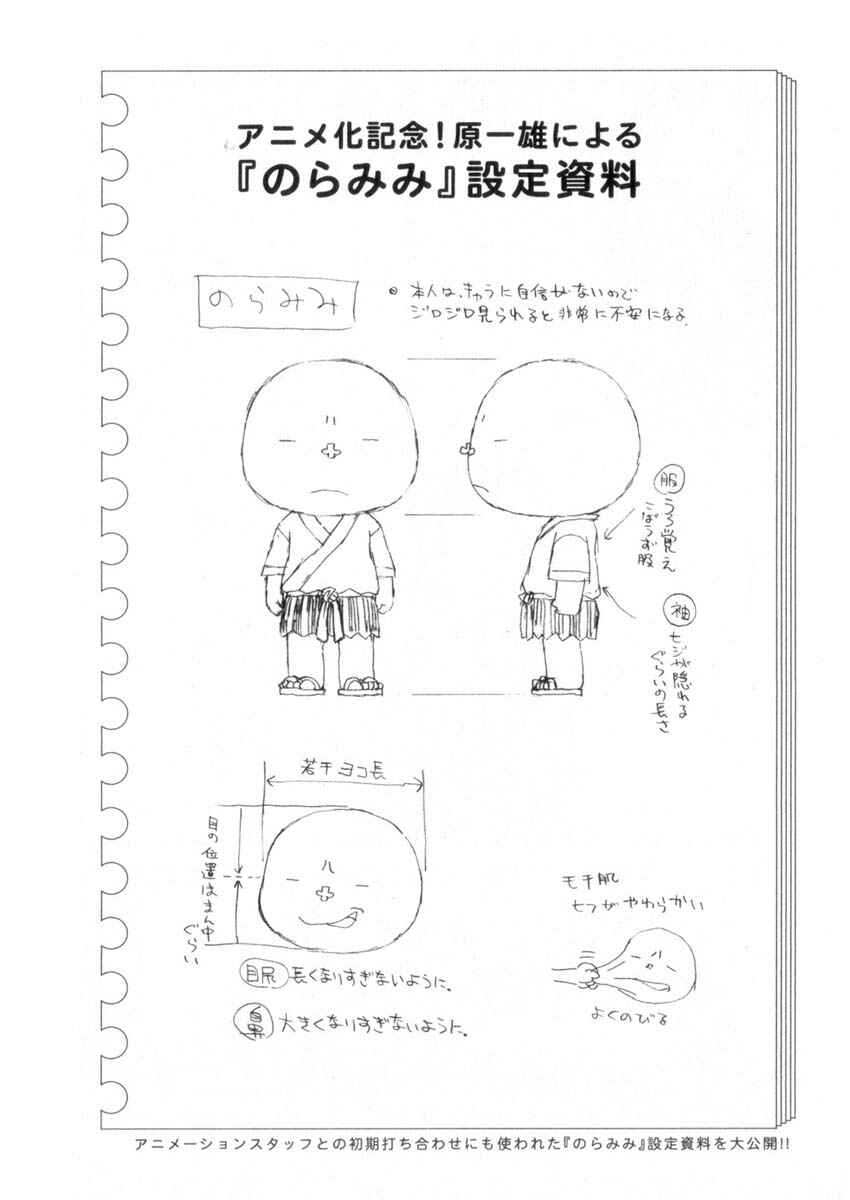 アニメ化記念!原一雄による
『のらみみ』設定資料
のらみみ
◎ 本人は、きゅうに自信がないので
ジロジロ見られると非常に不安になる。
服
うろ覚え
こぼうず服
袖
ヒジが隠れる
ぐらいの長さ
若干ヨコ長
目の位置はまん中
ぐらい
目尻 長くなりすぎないように。
鼻 大きくなりすぎないように。
モチ肌
ヒフがやわらかい
よくのびる
アニメーションスタッフとの初期打ち合わせにも使われた『のらみみ』設定資料を大公開!!